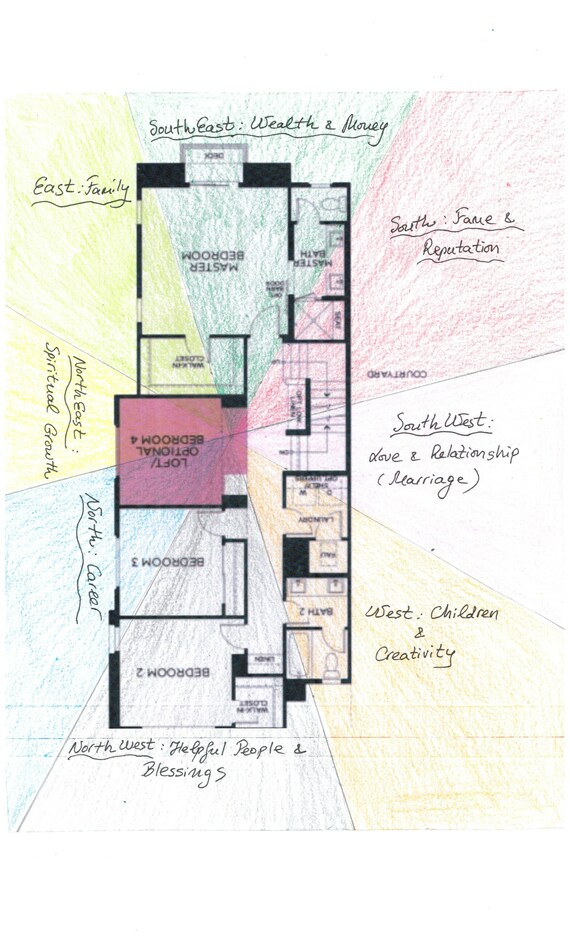 SouthEast: Wealth & Money
East: Family
DECK
South: Fame &
Reputation
MASTER
BEDROOM
MASTER
BATH
OPT.
BARN
DOOR
SEAT
WALK-IN
CLOSET
UP
COURTYARD
NorthEast:
Spiritual Growth
LOFT/
OPTIONAL
BEDROOM 4
SouthWest:
Love & Relationship
(Marriage)
OPT. UPPERS
W
D
LAUNDRY
FAU
North: Career
BEDROOM 3
BATH 2
West: Children
&
Creativity
BEDROOM 2
LINEN
WALK-IN
CLOSET
NorthWest: Helpful People &
Blessings